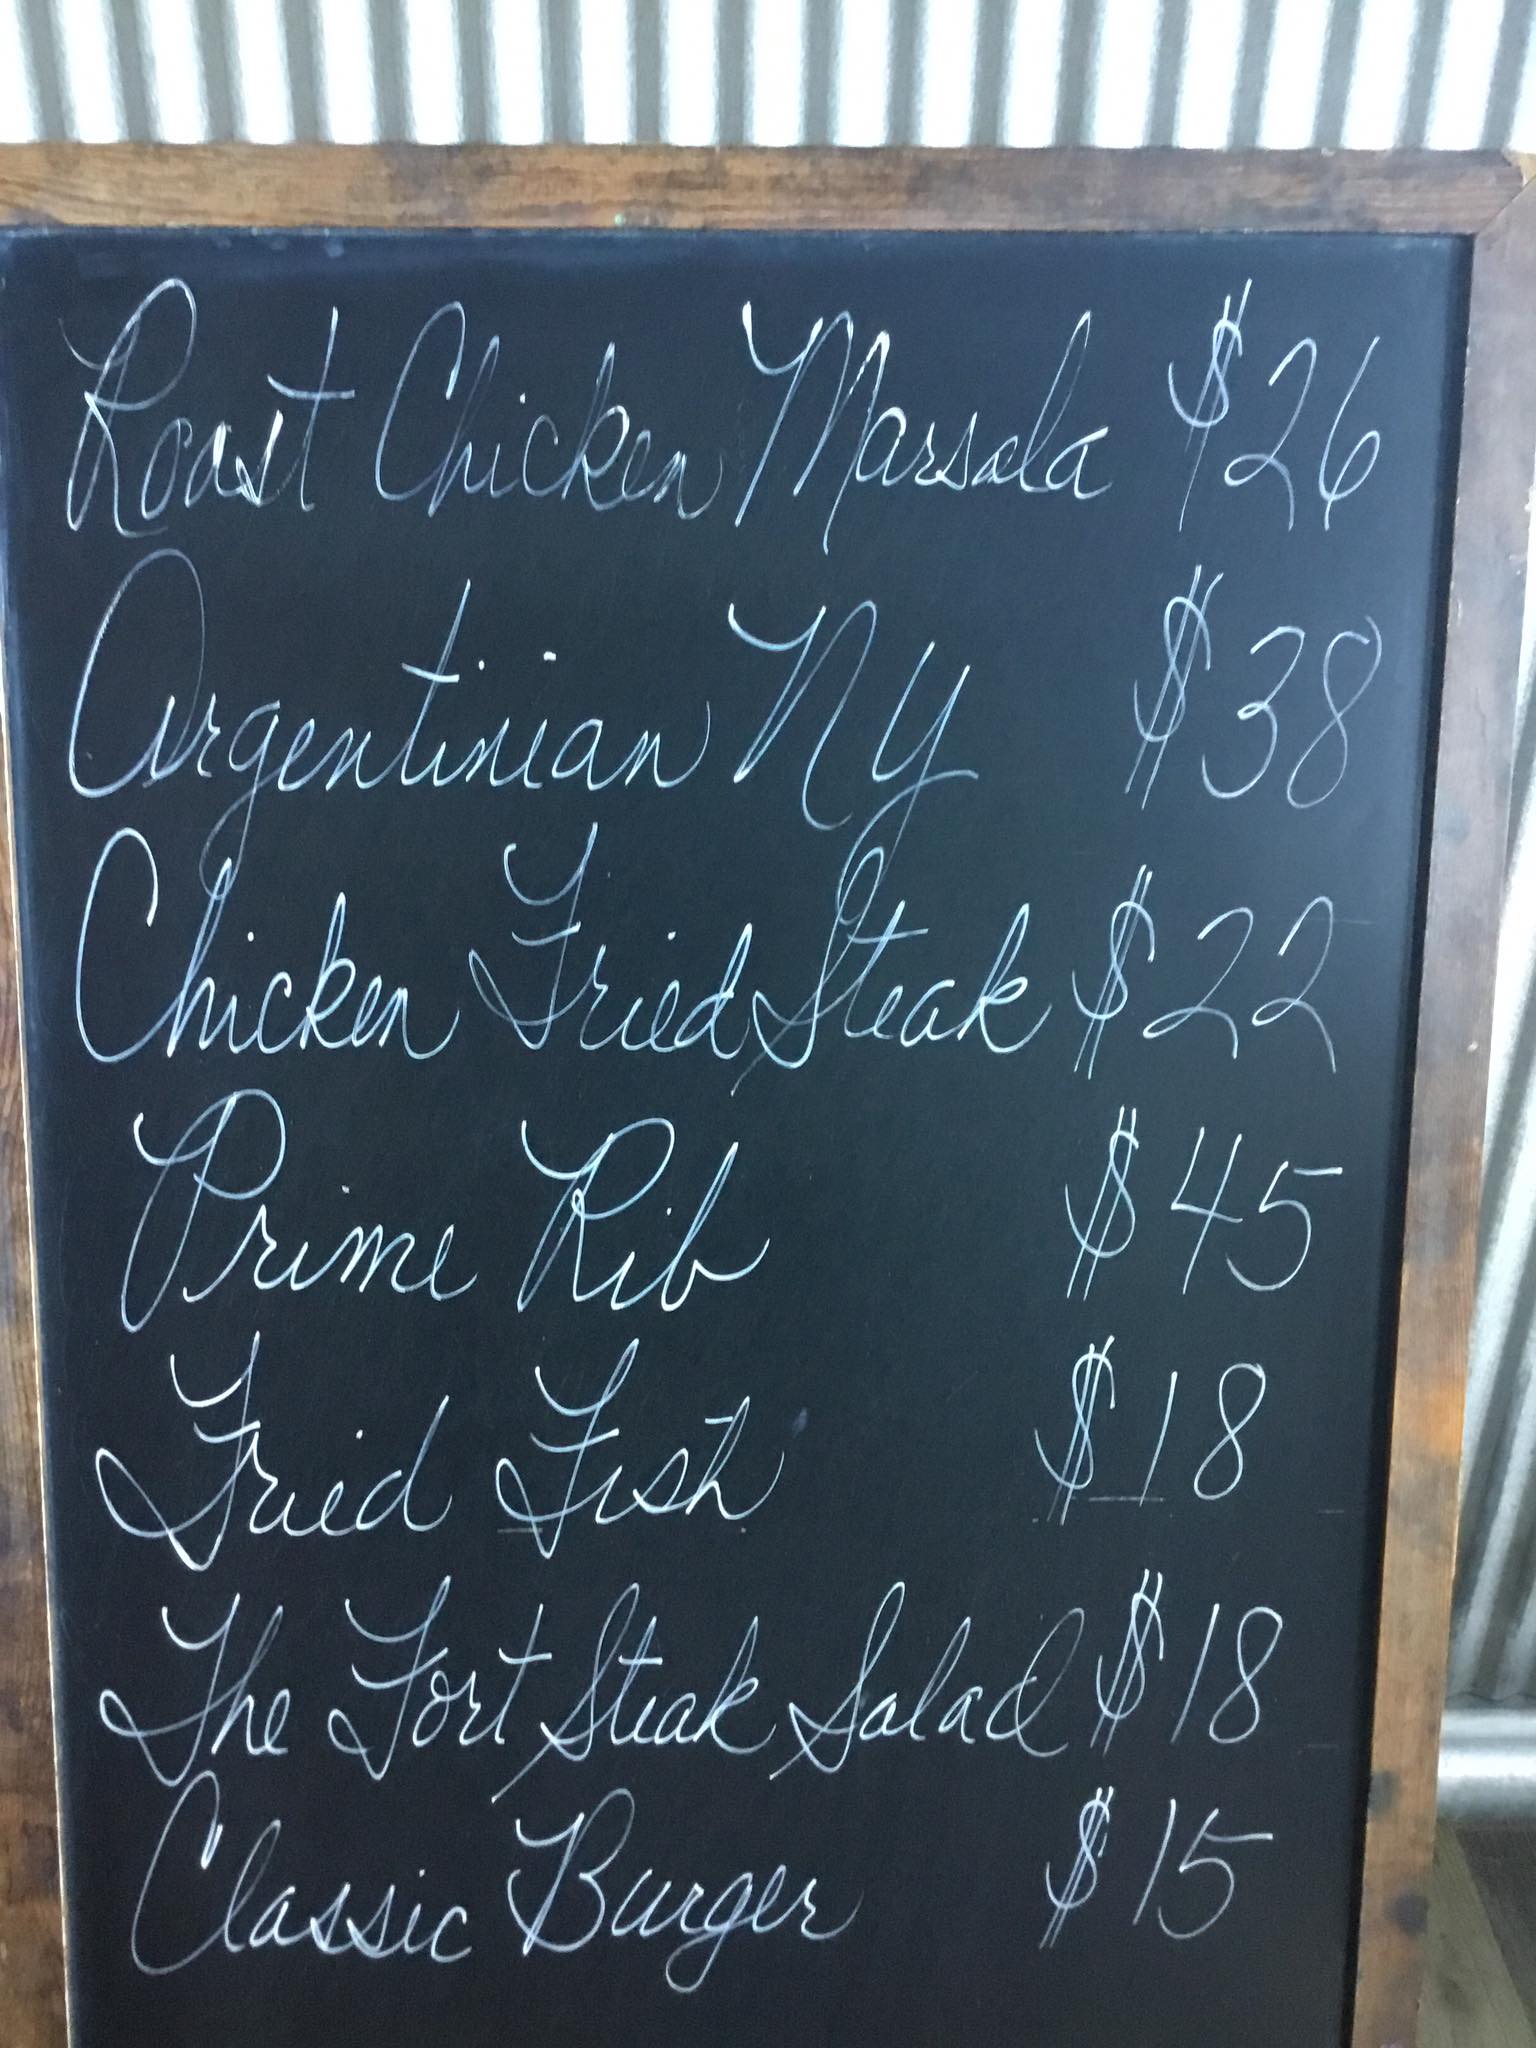 Roast Chicken Marsala $26
Argentinian NY $38
Chicken Fried Steak $22
Prime Rib $45
Fried Fish $18
The Fort Steak Salad $18
Classic Burger $15